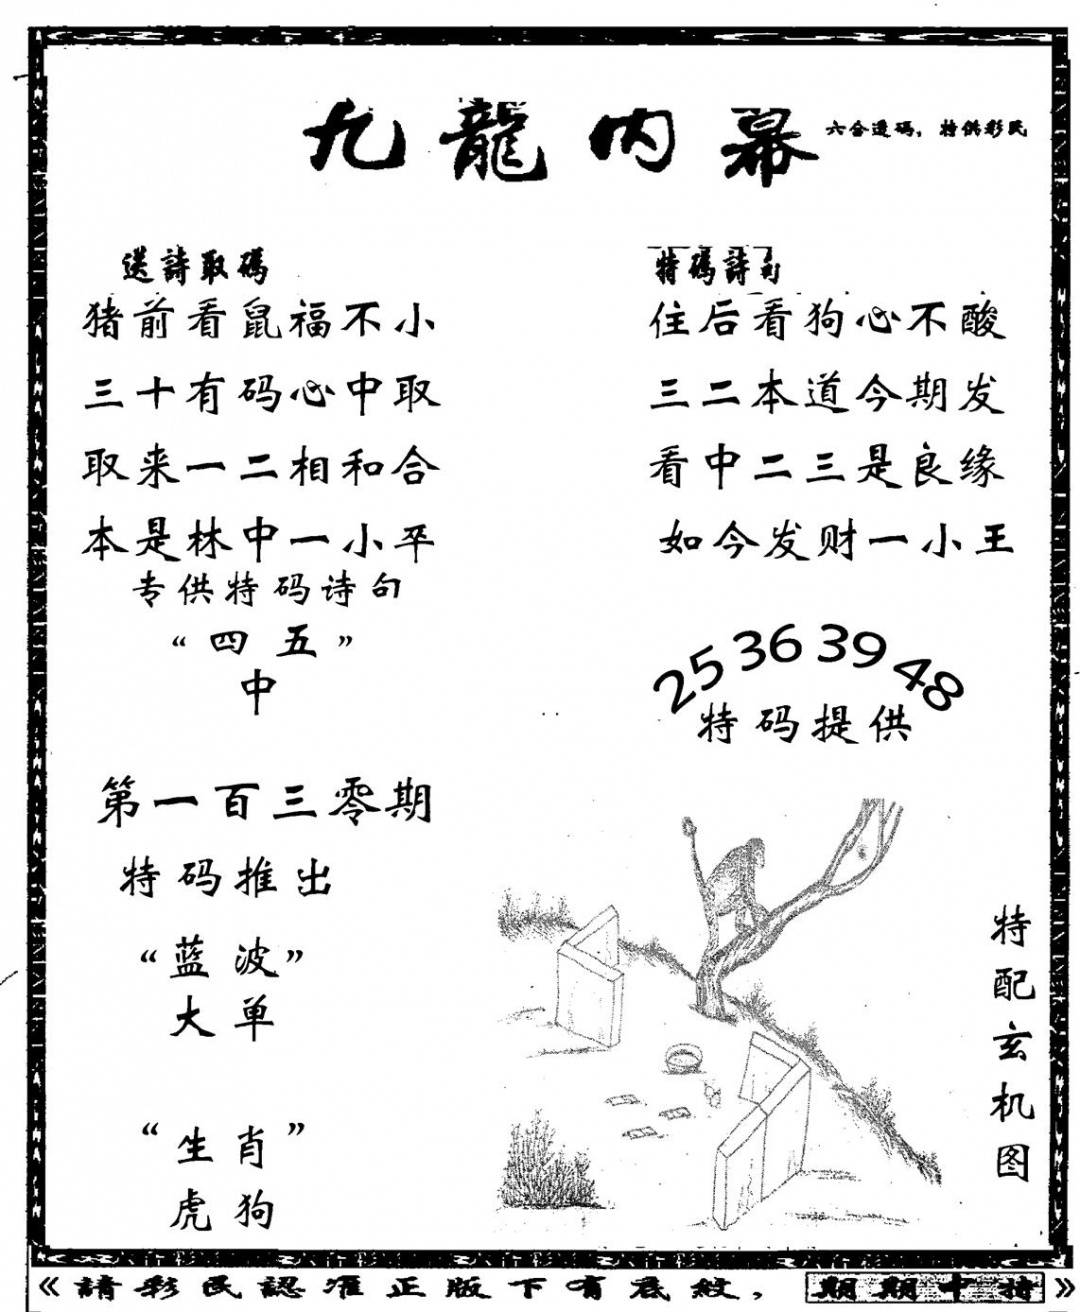 九龍内幕
六合透码,特供彩民
送詩取碼
猪前看鼠福不小
三十有码心中取
取来一二相和合
本是林中一小卒
专供特码诗句
“四五”
中
特碼詩句
住后看狗心不酸
三二本道今期发
看中二三是良缘
如今发财一小王
25 36 39 48
特码提供
第一百三零期
特码推出
“蓝波”
大单
“生肖”
虎狗
特配玄机图
《請彩民認准正版下有底紋,期期中特》